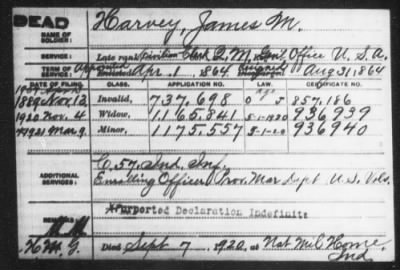 DEAD
NAME OF SOLDIER: Harvey, James M.
SERVICE: Late rank Civilian Clerk Q.M. Genl. Office U.S.A.
TERM OF SERVICE: Appointed Apr. 1 1864 Aug 31, 1864
DATE OF FILING. CLASS. APPLICATION NO. LAW. CERTIFICATE NO.
1889 Nov. 12 Invalid, 737.698 857.186
1920 Nov. 4 Widow, 1165.841 5-1-1920 936939
1921 Mar 9 Minor, 1175.557 5-1-20 936940
ADDITIONAL SERVICES: C. 57. Ind. Inf.
Enrolling Officer Prov. Mar. Dept. U.S. Vols.
REMARKS: Purported Declaration Indefinite
H.M.G. Died Sept 7, 1920, at Nat Mil Home,
Ind.